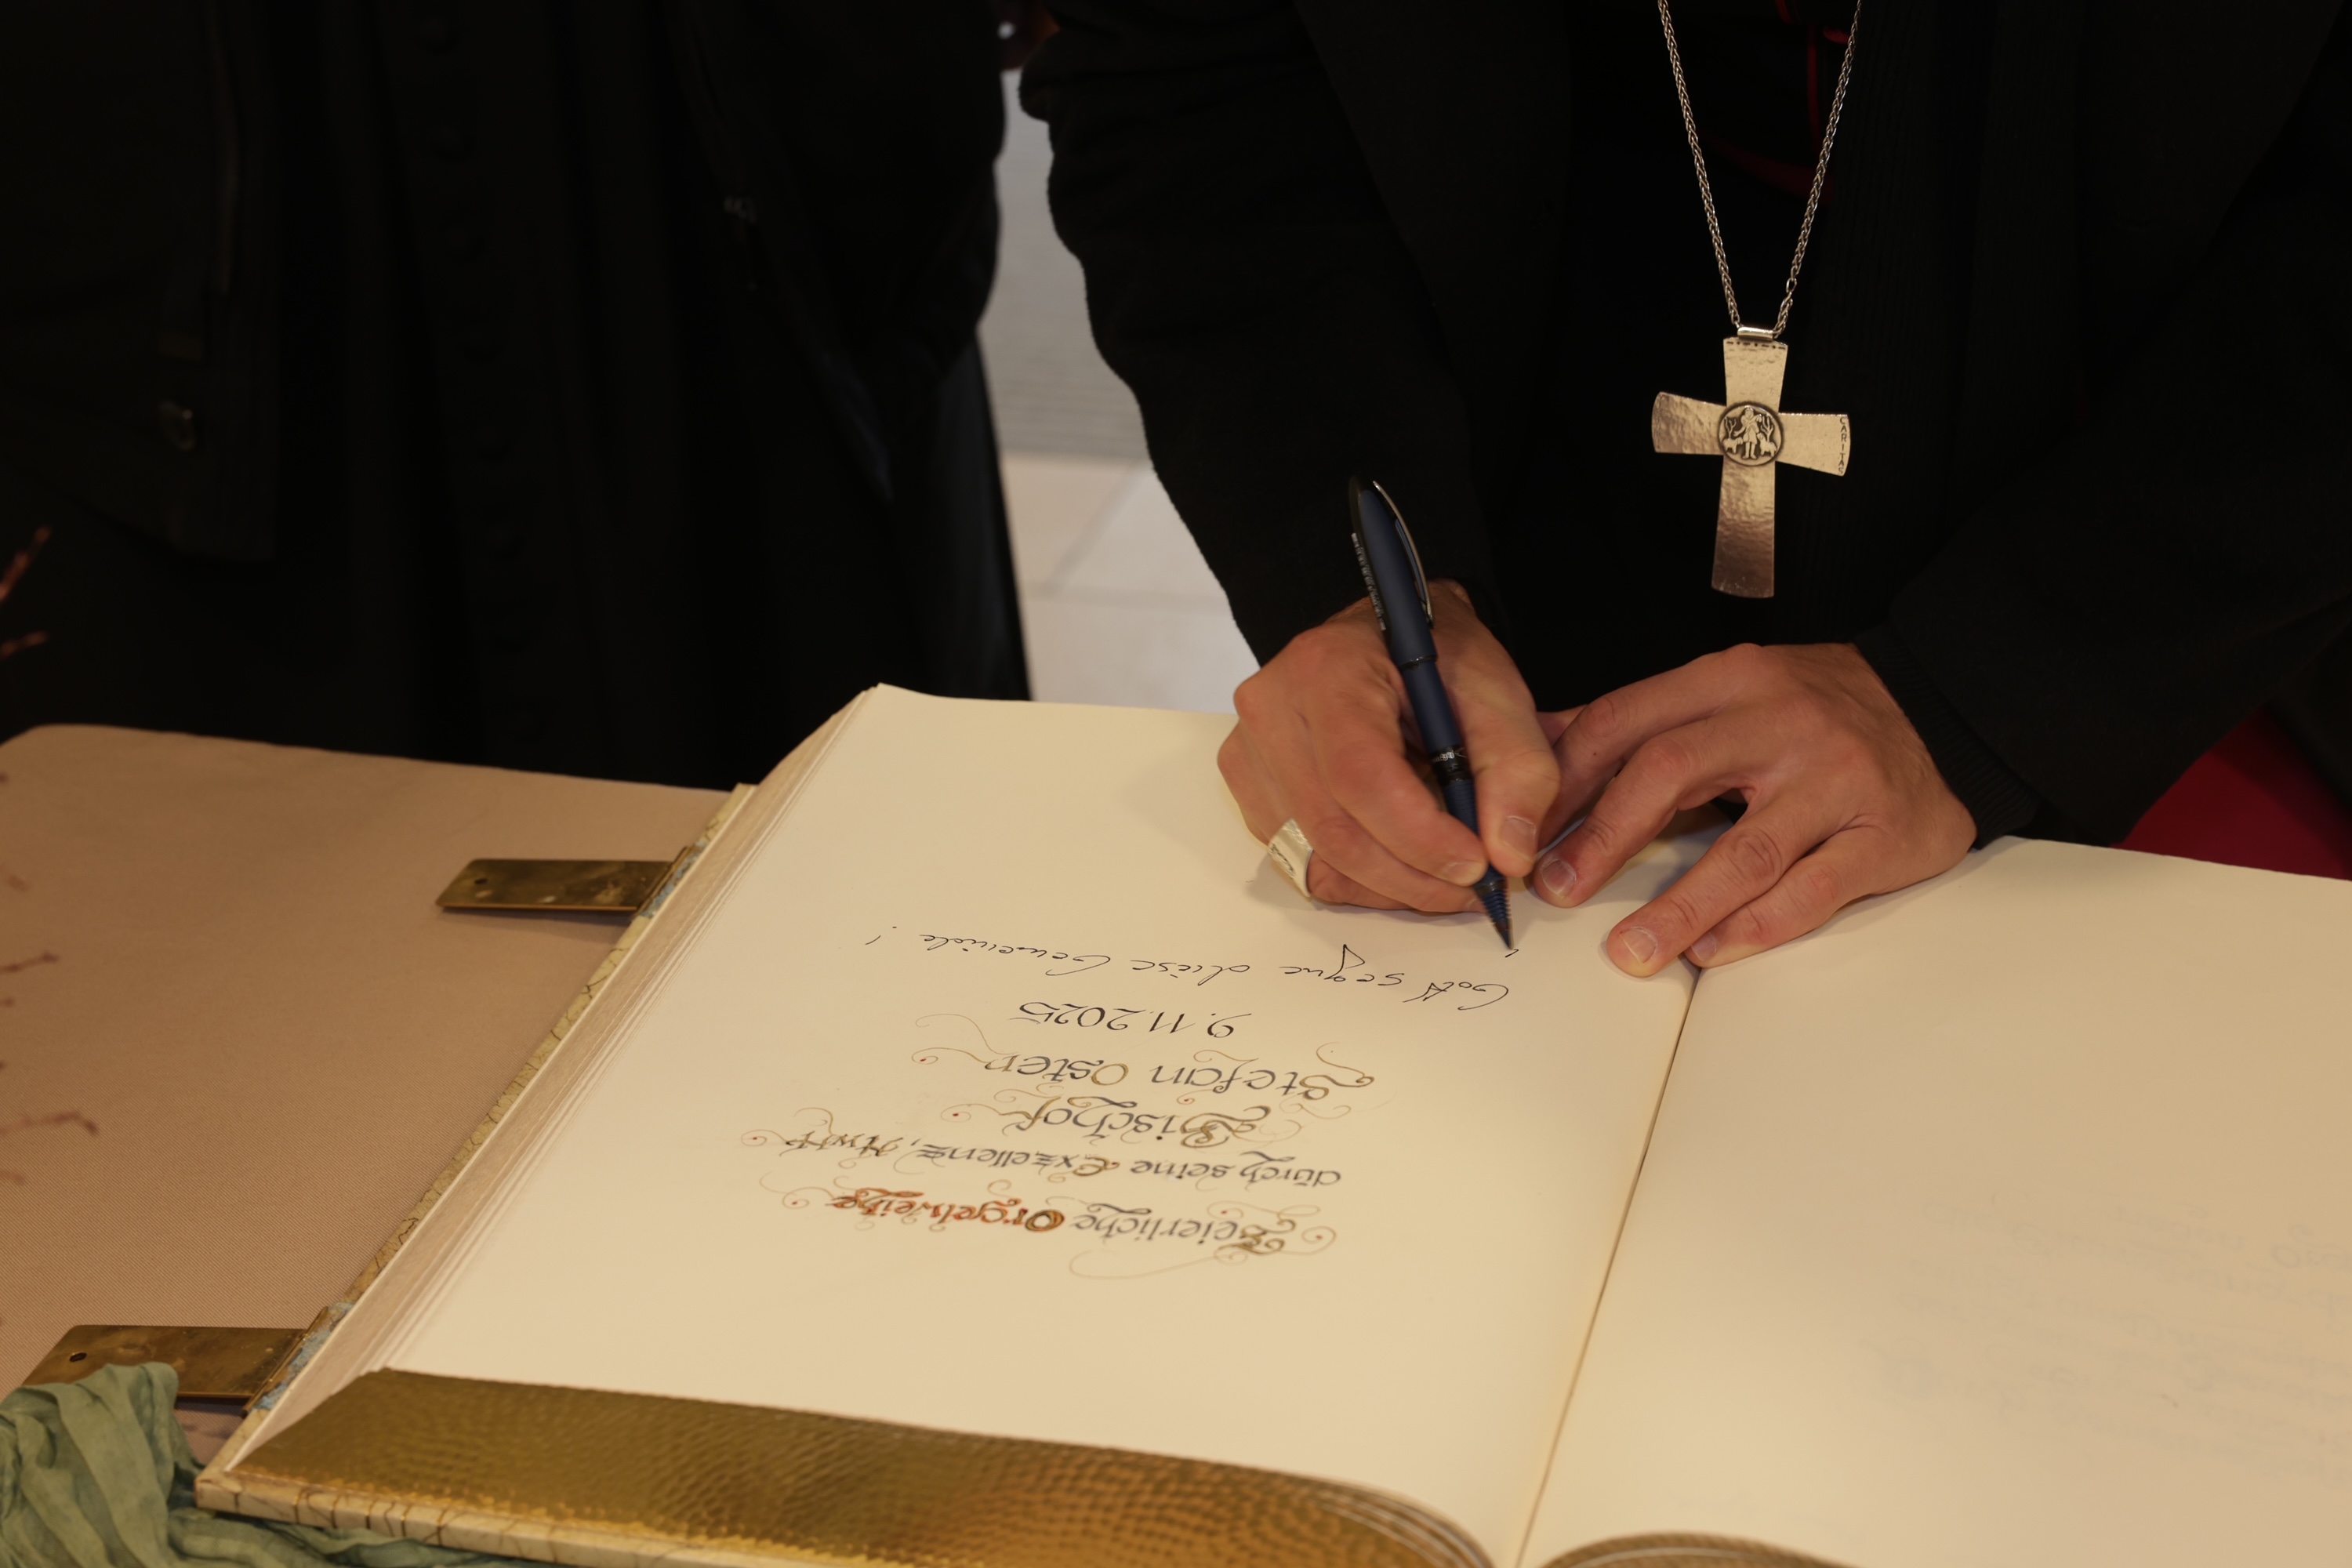 Feierliche Orgelweihe
durch seine Exzellenz, Hwst
Bischof
Stefan Oster
9.11.2025
Gott segne diese Gemeinde!
CARITAS